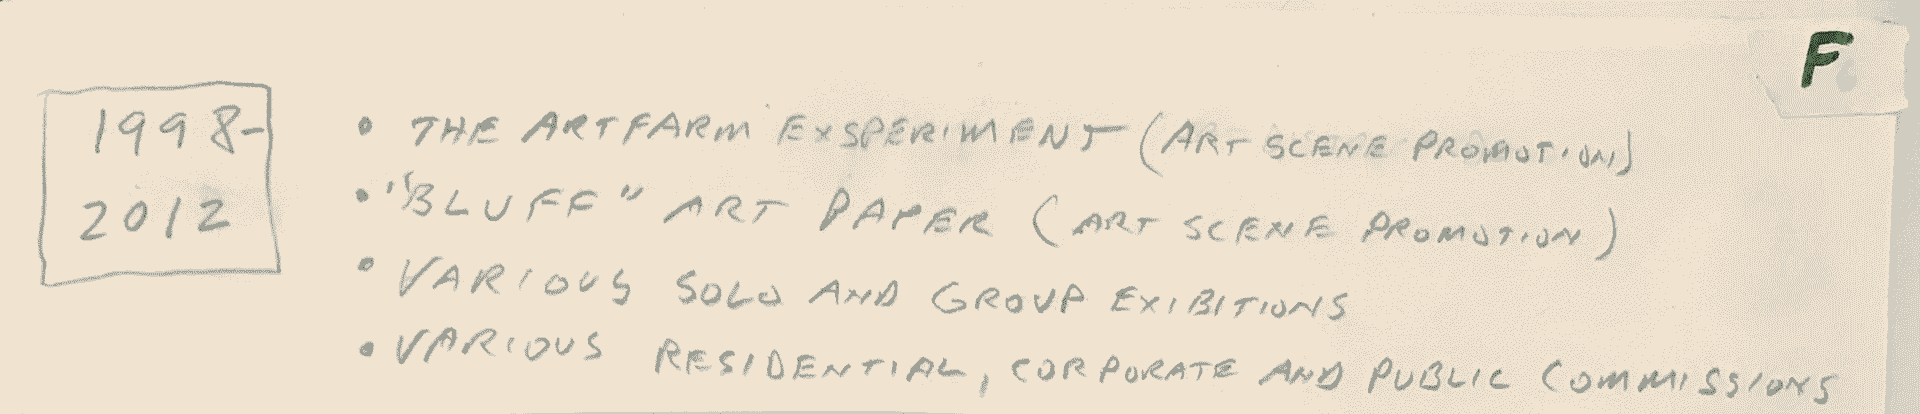 F
1998-
2012
• THE ARTFARM EXSPERIMENT (ART SCENE PROMOTION)
• "BLUFF" ART PAPER (ART SCENE PROMOTION)
• VARIOUS SOLO AND GROUP EXIBITIONS
• VARIOUS RESIDENTIAL, CORPORATE AND PUBLIC COMMISSIONS